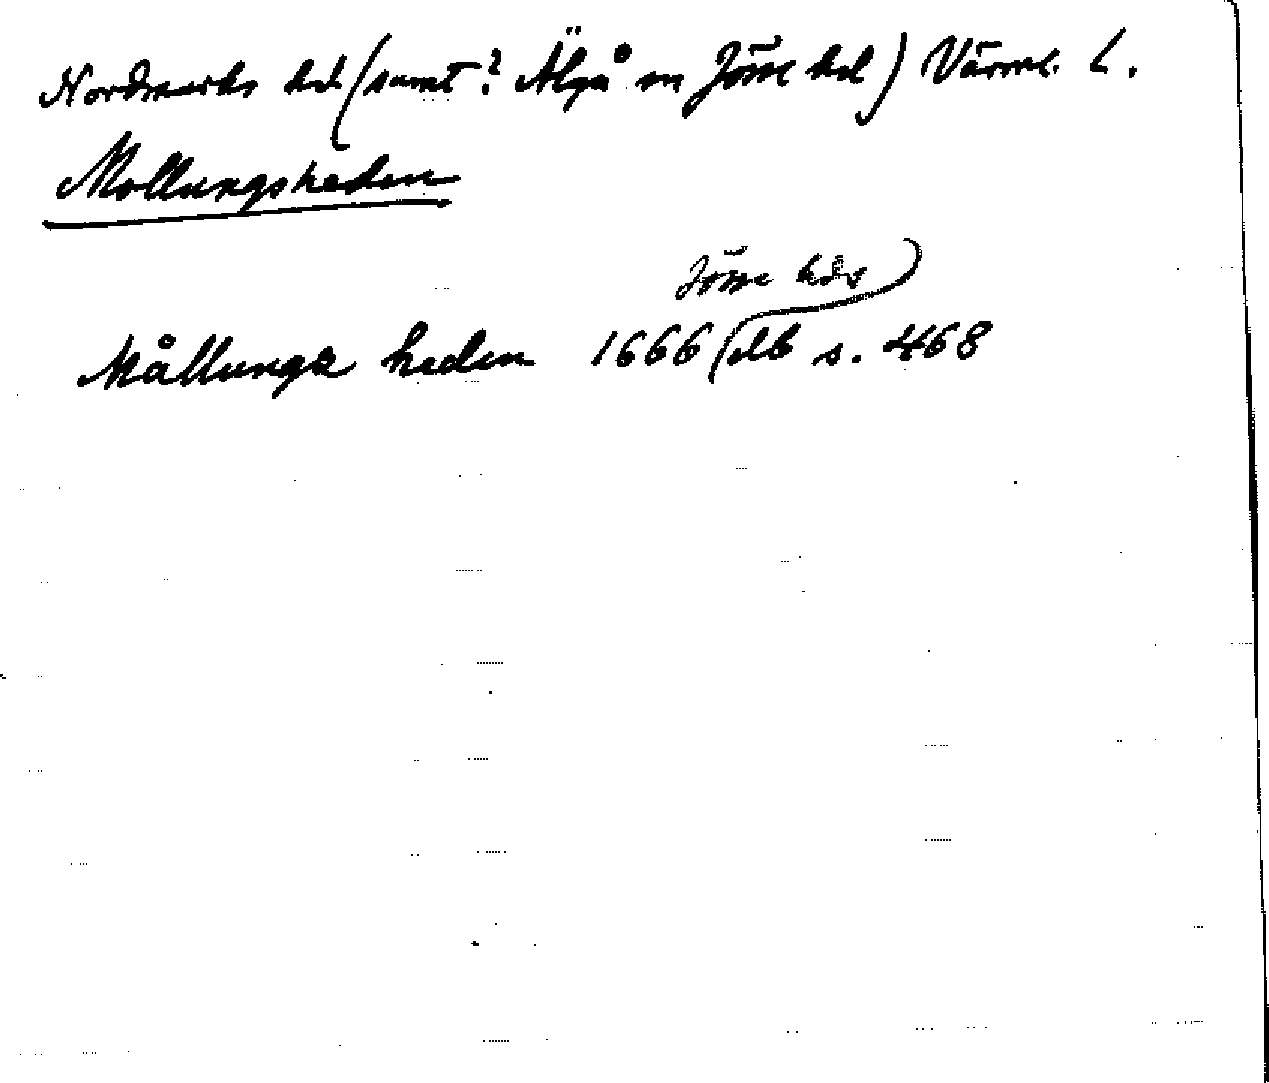 Nordmarks hd (samt? Älgå sn Jösse hd) Värml. L.
Mollungsheden
Jösse hds
Mållungz heden 1666 (db s. 468